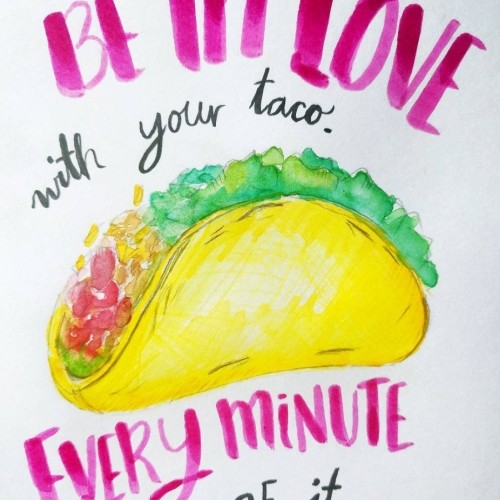 BE IN LOVE
with your taco.
EVERY MINUTE
OF it